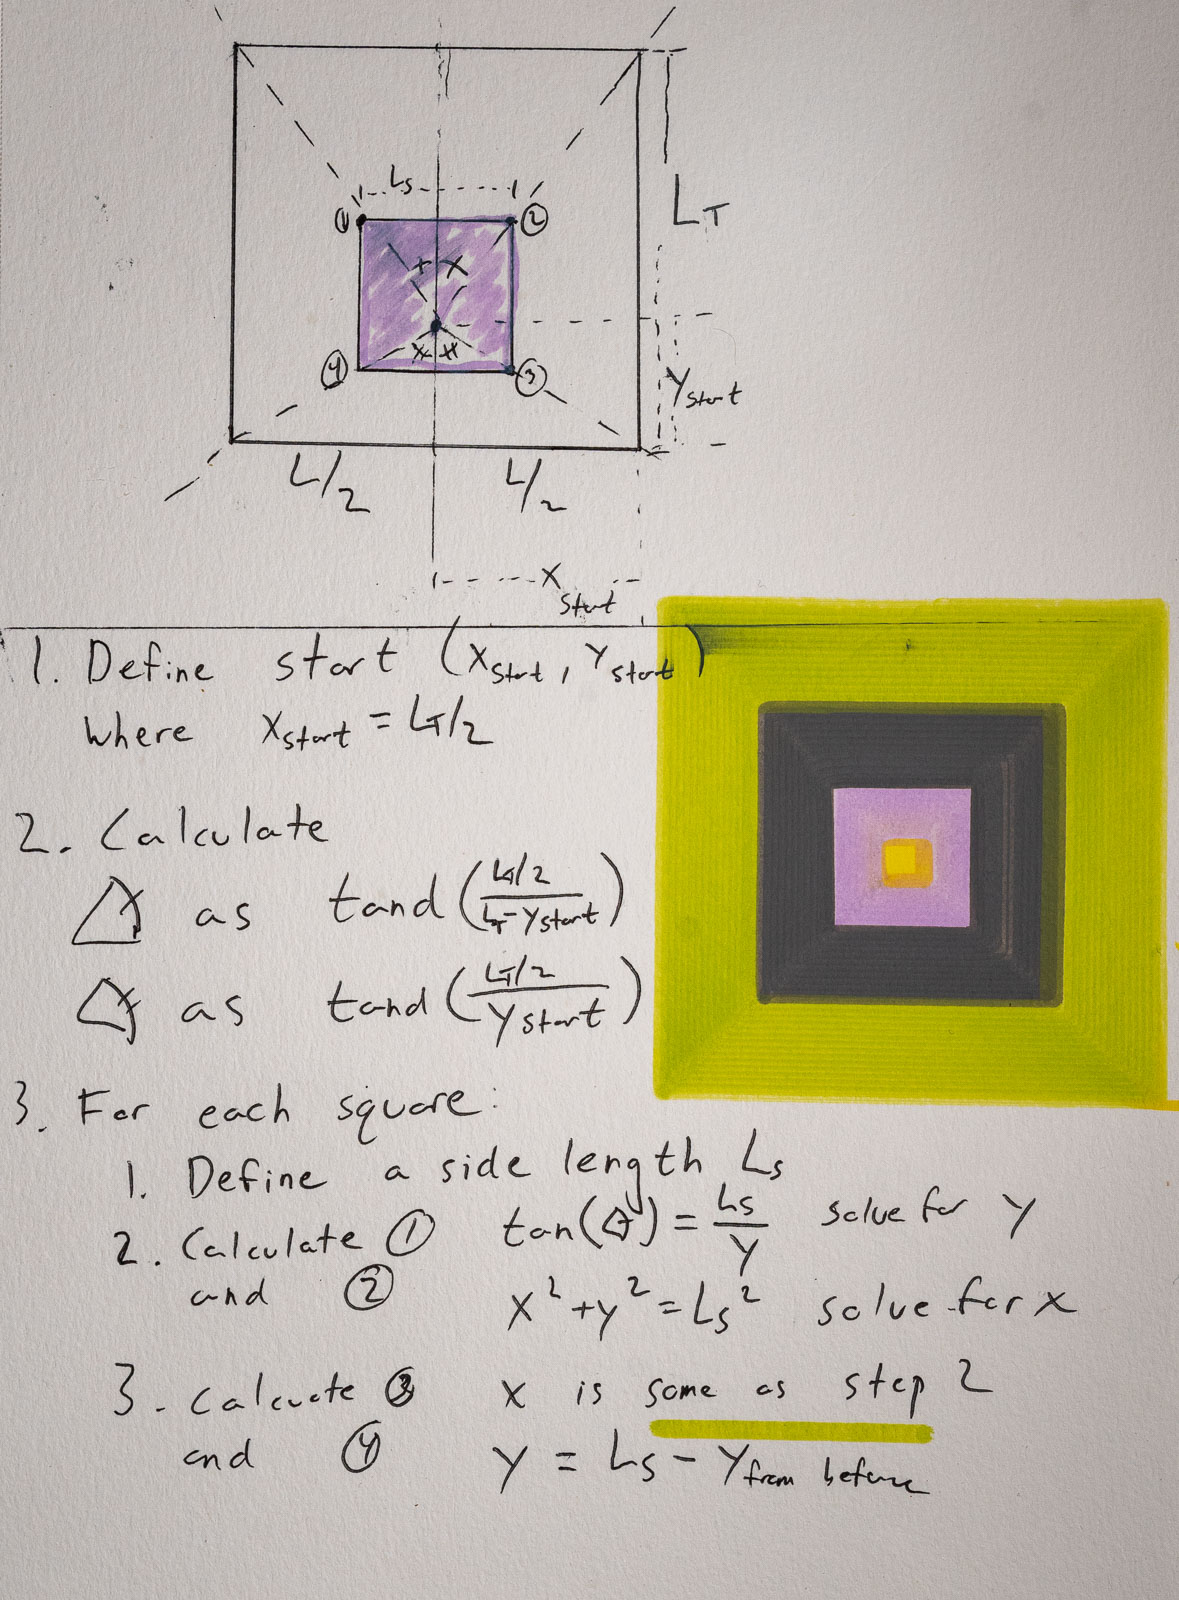 Ls
① ②
+ x
x x
④ ③
LT
Ystart
L/2 L/2
Xstart
1. Define start (Xstart, Ystart)
where Xstart = LT/2
2. Calculate
as tand (LT/2 / LT-Ystart)
as tand (LT/2 / Ystart)
3. For each square:
1. Define a side length Ls
2. Calculate ① tan( ) = Ls/Y solve for y
and ② x² + y² = Ls² solve for x
3. Calcuate ③ x is same as step 2
and ④ y = Ls - Yfrom before